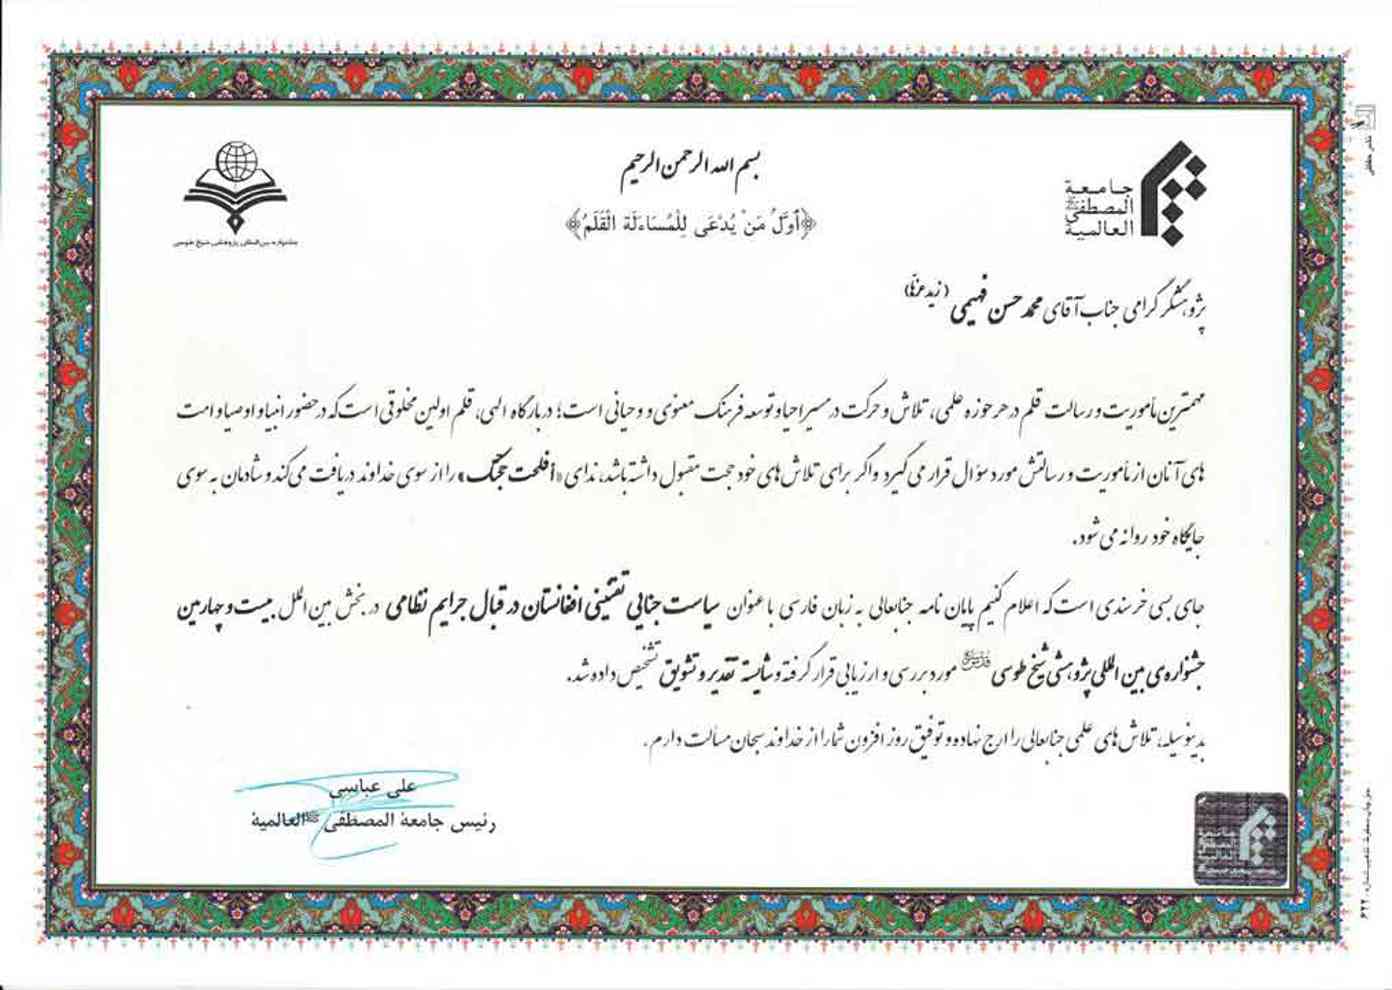 بسم الله الرحمن الرحیم
﴿أوَّلُ مَنْ يُدْعَى لِلْمُسَاءَلَة الْقَلَمُ﴾
جامعة
المصطفی ﷺ
العالمیة
جشنواره بین‌المللی پژوهشی شیخ طوسی
پژوهشگر گرامی جناب آقای محمد حسن فهیمی (زید عزّه)
مهمترین مأموریت و رسالت قلم در هر حوزه علمی، تلاش و حرکت در مسیر احیا و توسعه فرهنگ معنوی و وحیانی است؛ در بارگاه الهی، قلم اولین مخلوقی است که در حضور انبیا و اوصیا و امت
های آنان از مأموریت و رسالتش مورد سؤال قرار می گیرد و اگر برای تلاش های خود حجت مقبول داشته باشد، ندای «أفلحت حجتک» را از سوی خداوند دریافت می کند و شادمان به سوی
جایگاه خود روانه می شود.
جای بسی خرسندی است که اعلام کنیم پایان نامه جنابعالی به زبان فارسی با عنوان سیاست جنایی تقنینی افغانستان در قبال جرایم نظامی در بخش بین الملل بیست و چهارمین
جشنواره‌ی بین المللی پژوهشی شیخ طوسی مورد بررسی و ارزیابی قرار گرفته و شایسته تقدیر و تشویق تشخیص داده شد.
بدینوسیله، تلاش های علمی جنابعالی را ارج نهاده و توفیق روز افزون شما را از خداوند سبحان مسألت دارم.
علی عباسی
رئیس جامعة المصطفی ﷺ العالمیة
جامعة
المصطفی
العالمیة